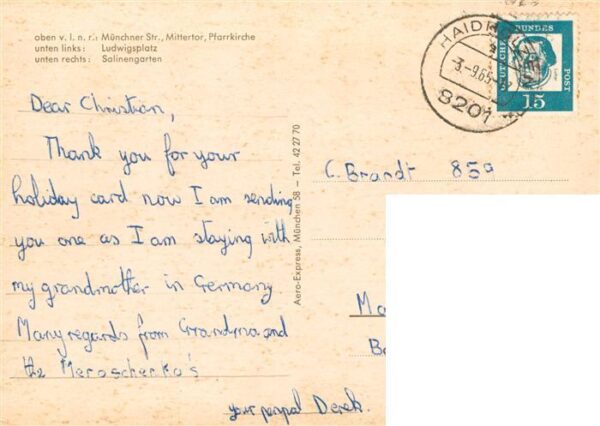 oben v. l. n. r.: Münchner Str., Mittertor, Pfarrkirche
unten links: Ludwigsplatz
unten rechts: Salinengarten
Dear Christian,
Thank you for your
holiday card now I am sending
you one as I am staying with
my grandmother in Germany
Many regards from Grandma and
the Meroscherko's
your penpal Derek.
Aero-Express, München 58 – Tel. 42 27 70
3.-9.65
8201
DEUTSCHE BUNDESPOST
15
C. Brandt 85a
Ma
Ba